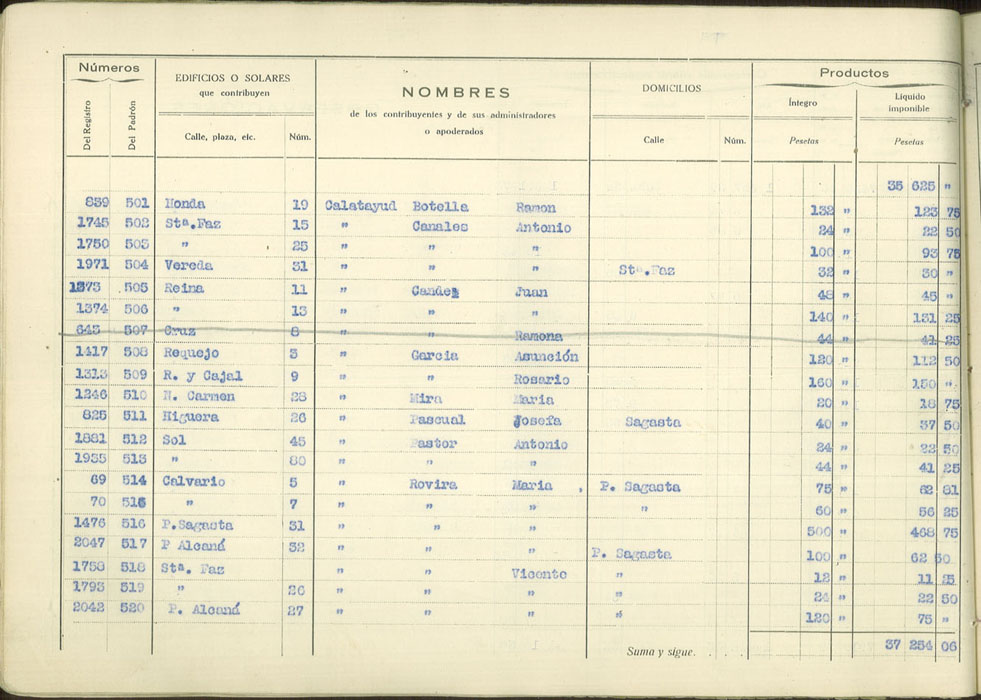 Números EDIFICIOS O SOLARES que contribuyen NOMBRES de los contribuyentes y de sus administradores o apoderados DOMICILIOS Productos
Del Registro Del Padrón Calle, plaza, etc. Núm. Calle Núm. Íntegro Pesetas Líquido imponible Pesetas
35 625 "
839 501 Honda 19 Calatayud Botella Ramon 132 " 123 75
1745 502 Stª.Faz 15 " Canales Antonio 24 " 22 50
1750 503 " 25 " " " 100 " 93 75
1971 504 Vereda 31 " " " Stª.Faz 32 " 30 "
1373 505 Reina 11 " Candel Juan 48 " 45 "
1374 506 " 13 " " " 140 " 131 25
643 507 Cruz 8 " " Ramona 44 " 41 25
1417 508 Requejo 3 " Garcia Asunción 120 " 112 50
1313 509 R. y Cajal 9 " " Rosario 160 " 150 "
1246 510 N. Carmen 28 " Mira Maria 20 " 18 75
825 511 Higuera 26 " Pascual Josefa Sagasta 40 " 37 50
1881 512 Sol 45 " Pastor Antonio 24 " 22 50
1935 513 " 80 " " " 44 " 41 25
69 514 Calvario 5 " Rovira Maria , P. Sagasta 75 " 62 81
70 515 " 7 " " " " 60 " 56 25
1476 516 P.Sagasta 31 " " " 500 " 468 75
2047 517 P Alcaná 32 " " " P. Sagasta 100 " 62 50
1758 518 Stª. Faz " " Vicente " 12 " 11 25
1793 519 " 26 " " " " 24 " 22 50
2042 520 P. Alcaná 27 " " " " 120 " 75 "
Suma y sigue. 37 254 06